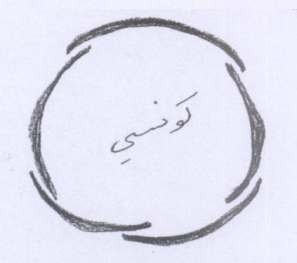 كونسي